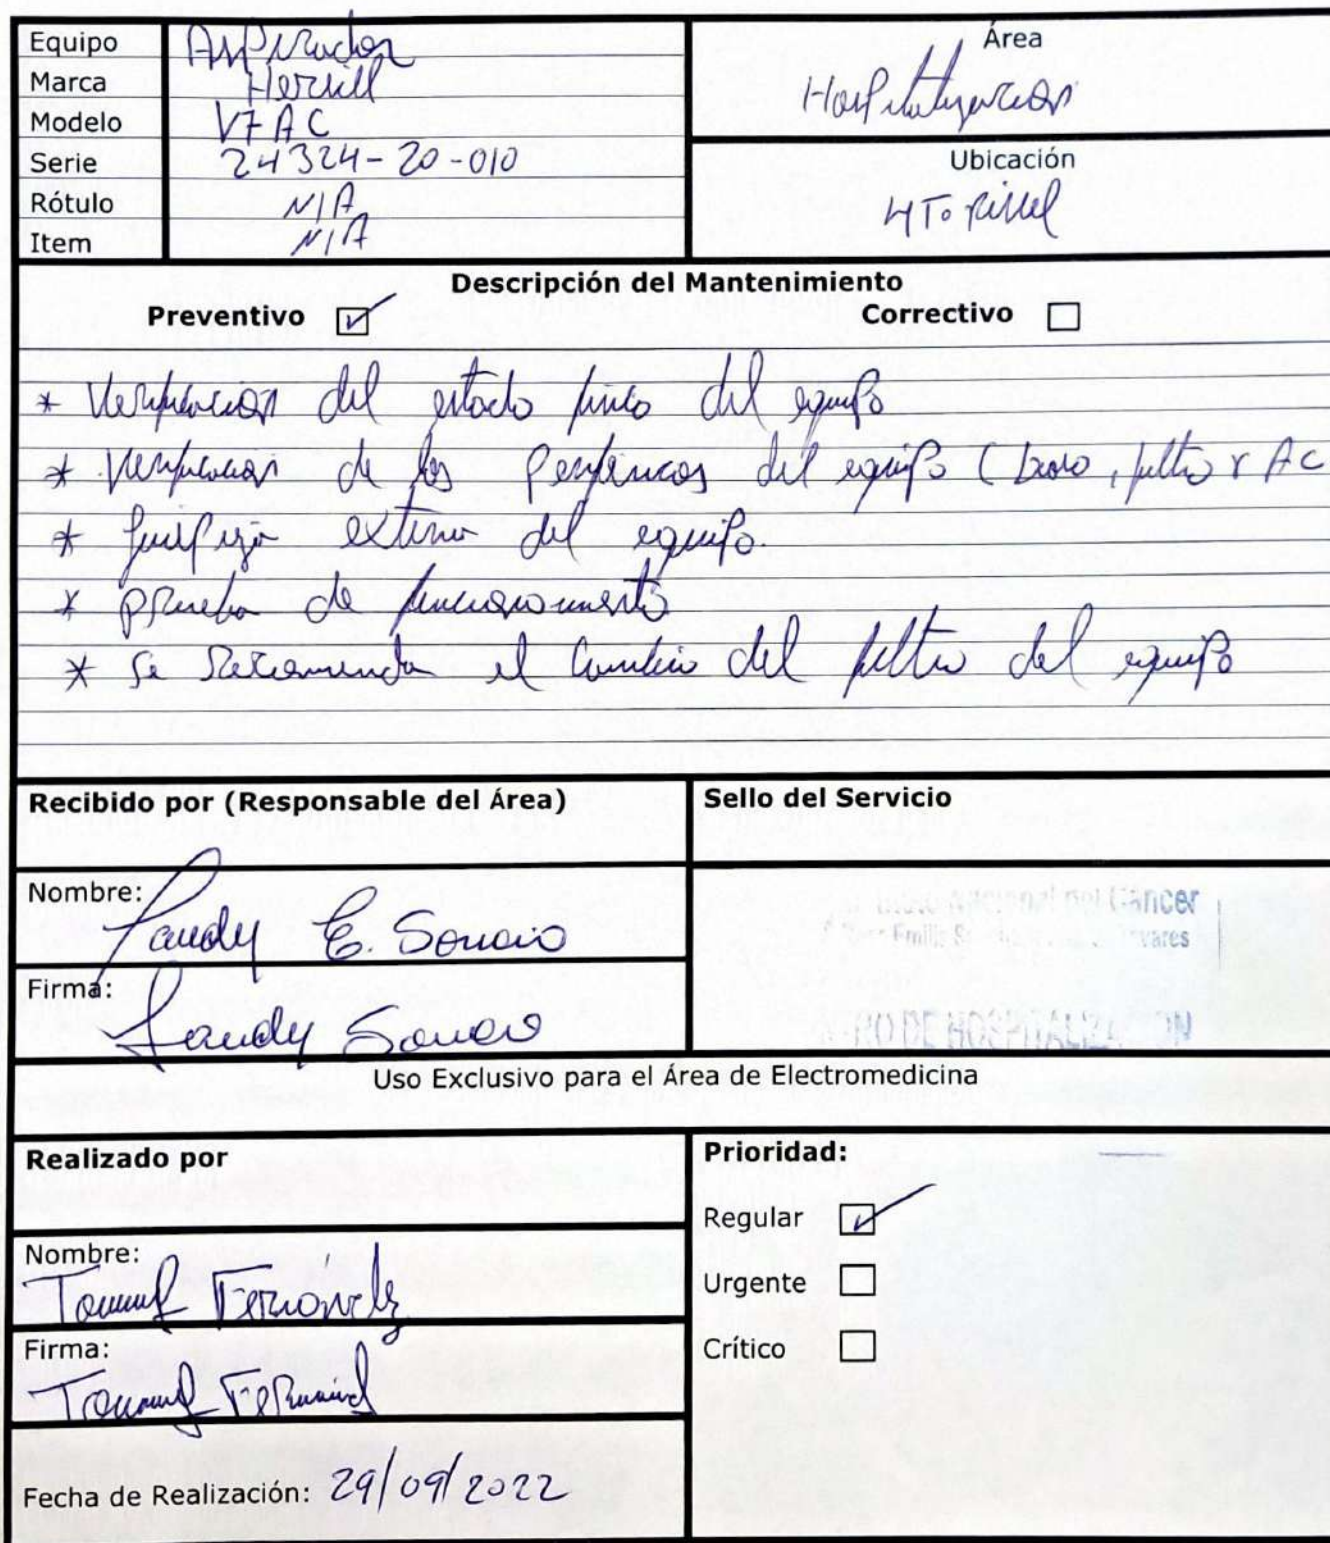 Equipo Aspirador
Marca Hersill
Modelo V7 AC
Serie 24324-20-010
Rótulo N/A
Item N/A
Área
Hospitalizacion
Ubicación
4To Nivel
Descripción del Mantenimiento
Preventivo Correctivo
* Verificacion del estado fisico del equipo
* Verificacion de los perifericos del equipo ( baso, filtro Y AC
* Limpieza externa del equipo.
* prueba de funcionamiento
* Se Recomienda el Cambio del filtro del equipo
Recibido por (Responsable del Área)
Sello del Servicio
Nombre:
E.
Firma:
Nacional del Cáncer
Emilia
DE HOSPITALIZACION
Uso Exclusivo para el Área de Electromedicina
Realizado por
Nombre:
Fernández
Firma:
Prioridad:
Regular
Urgente
Crítico
Fecha de Realización: 29/09/2022